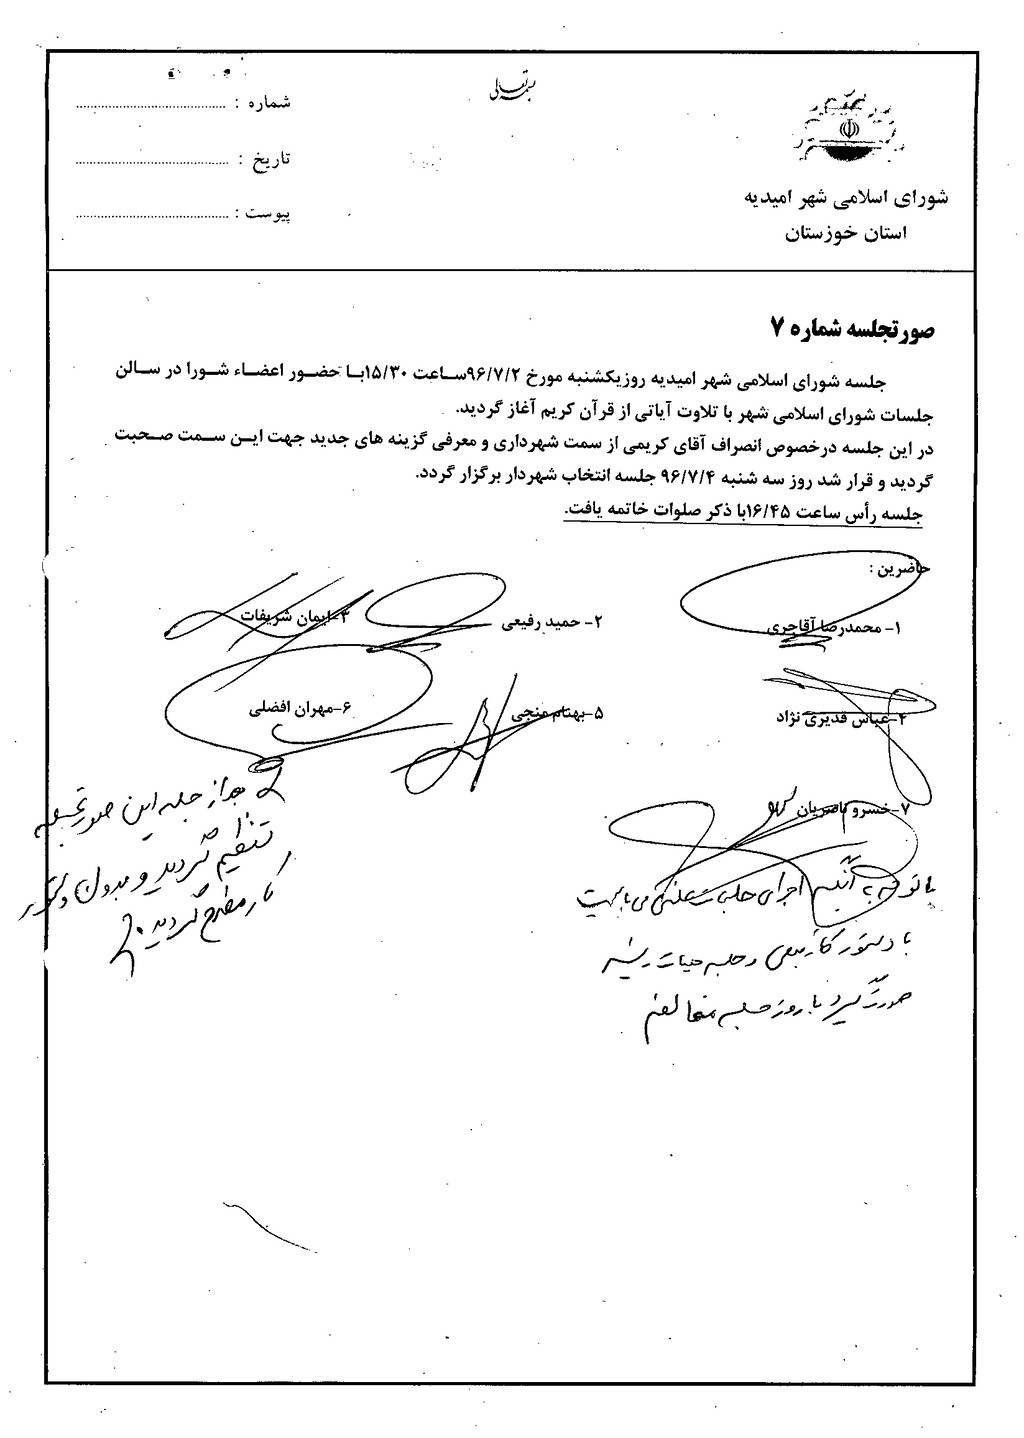 بسمه تعالی
شورای اسلامی شهر امیدیه
استان خوزستان
شماره : ..............................
تاریخ : ..............................
پیوست : ..............................
صورتجلسه شماره ۷
جلسه شورای اسلامی شهر امیدیه روزیکشنبه مورخ ۹۶/۷/۲ساعت ۱۵/۳۰با حضور اعضاء شورا در سالن
جلسات شورای اسلامی شهر با تلاوت آیاتی از قرآن کریم آغاز گردید.
در این جلسه درخصوص انصراف آقای کریمی از سمت شهرداری و معرفی گزینه های جدید جهت این سمت صحبت
گردید و قرار شد روز سه شنبه ۹۶/۷/۴ جلسه انتخاب شهردار برگزار گردد.
جلسه رأس ساعت ۱۶/۴۵با ذکر صلوات خاتمه یافت.
حاضرین :
۱- محمدرضا آقاجری
۲- حمید رفیعی
۳-ایمان شریفات
۴-عباس قدیری نژاد
۵-بهنام منجی
۶-مهران افضلی
۷-خسرو ناصریان
بعد از جلسه این صورتجلسه
تنظیم گردید و بدون دستور
کار مطرح گردید
با توجه به آنکه اجرای جلسات علنی می بایست
با دستور کار قبلی و جلسه هیات رئیسه
صورت گیرد با روز جلسه مخالفم